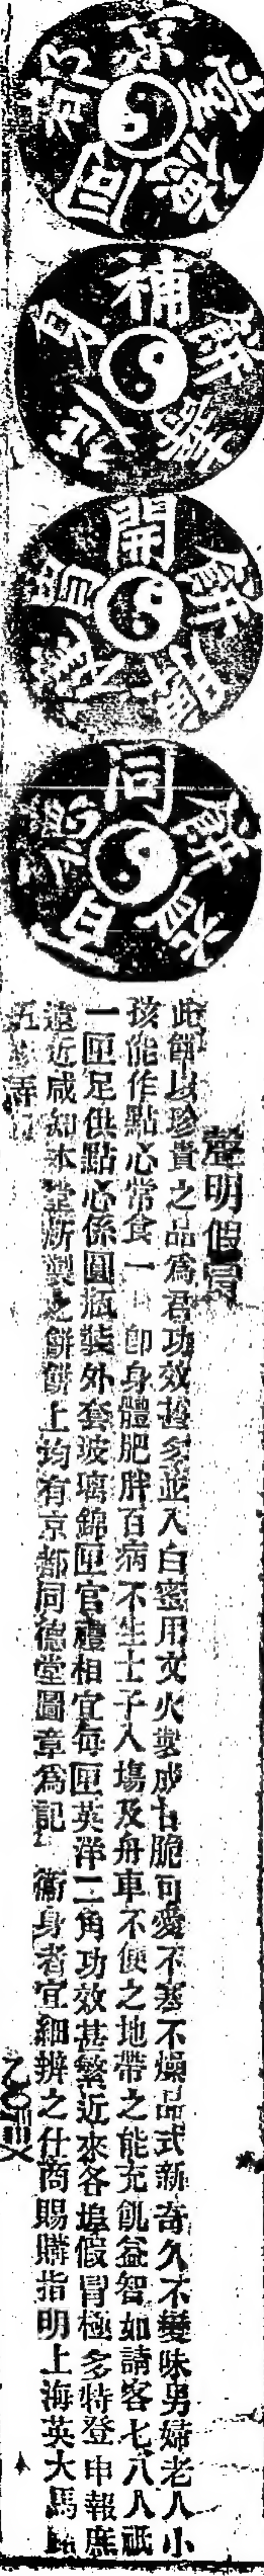 京都同德堂
補身延壽餅
開胃健脾餅
同
餅
聲明假冒
此餅以珍貴之品爲君功效甚多並入白蜜用文火製成甘脆可愛不寒不燥品式新奇久不變味男婦老人小
孩能作點心常食一 卽身體肥胖百病不生士子入塲及舟車不便之地帶之能充飢益智如請客七八人祇
一匣足供點心係圓瓶裝外套玻璃錦匣官禮相宜每匣英洋二角功效甚繁近來各埠假冒極多特登申報庶
遠近咸知本堂新製之餅餅上均有京都同德堂圖章爲記 衞身者宜細辨之仕商賜購指明上海英大馬路
五 弄口